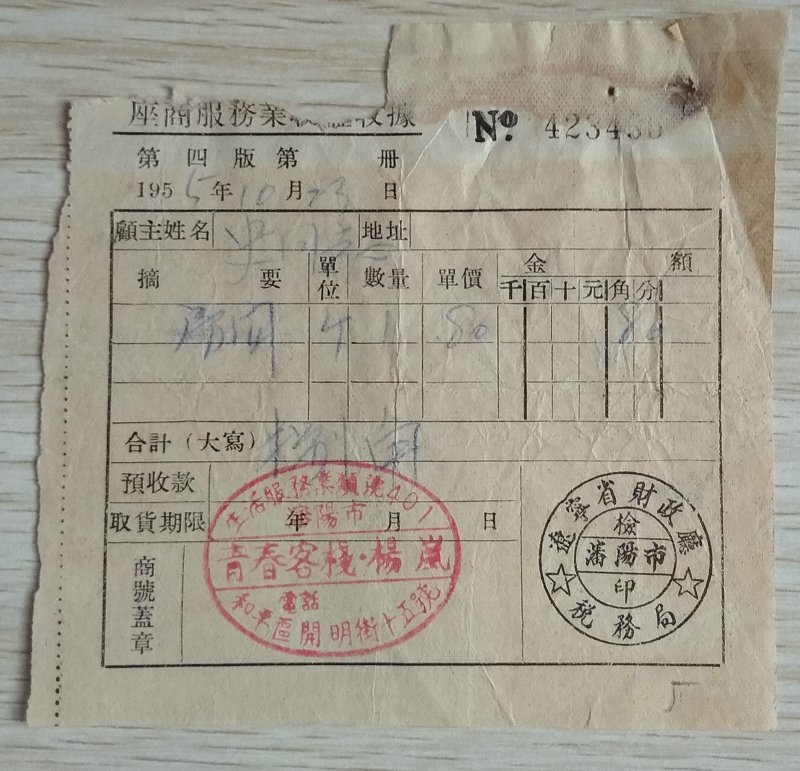 座商服務業
收據
№ 423430
第四版第 冊
1955年10月23日
顧主姓名 地址
摘要 單位 數量 單價 金額
千百十元角分
1 80 80
合計（大寫） 捌角
預收款
取貨期限 年 月 日
商號蓋章
生活服務業 401
瀋陽市
青春客棧·楊嵐
電話
和平區開明街十五號
遼寧省財政廳
檢
瀋陽市
印
稅務局
5